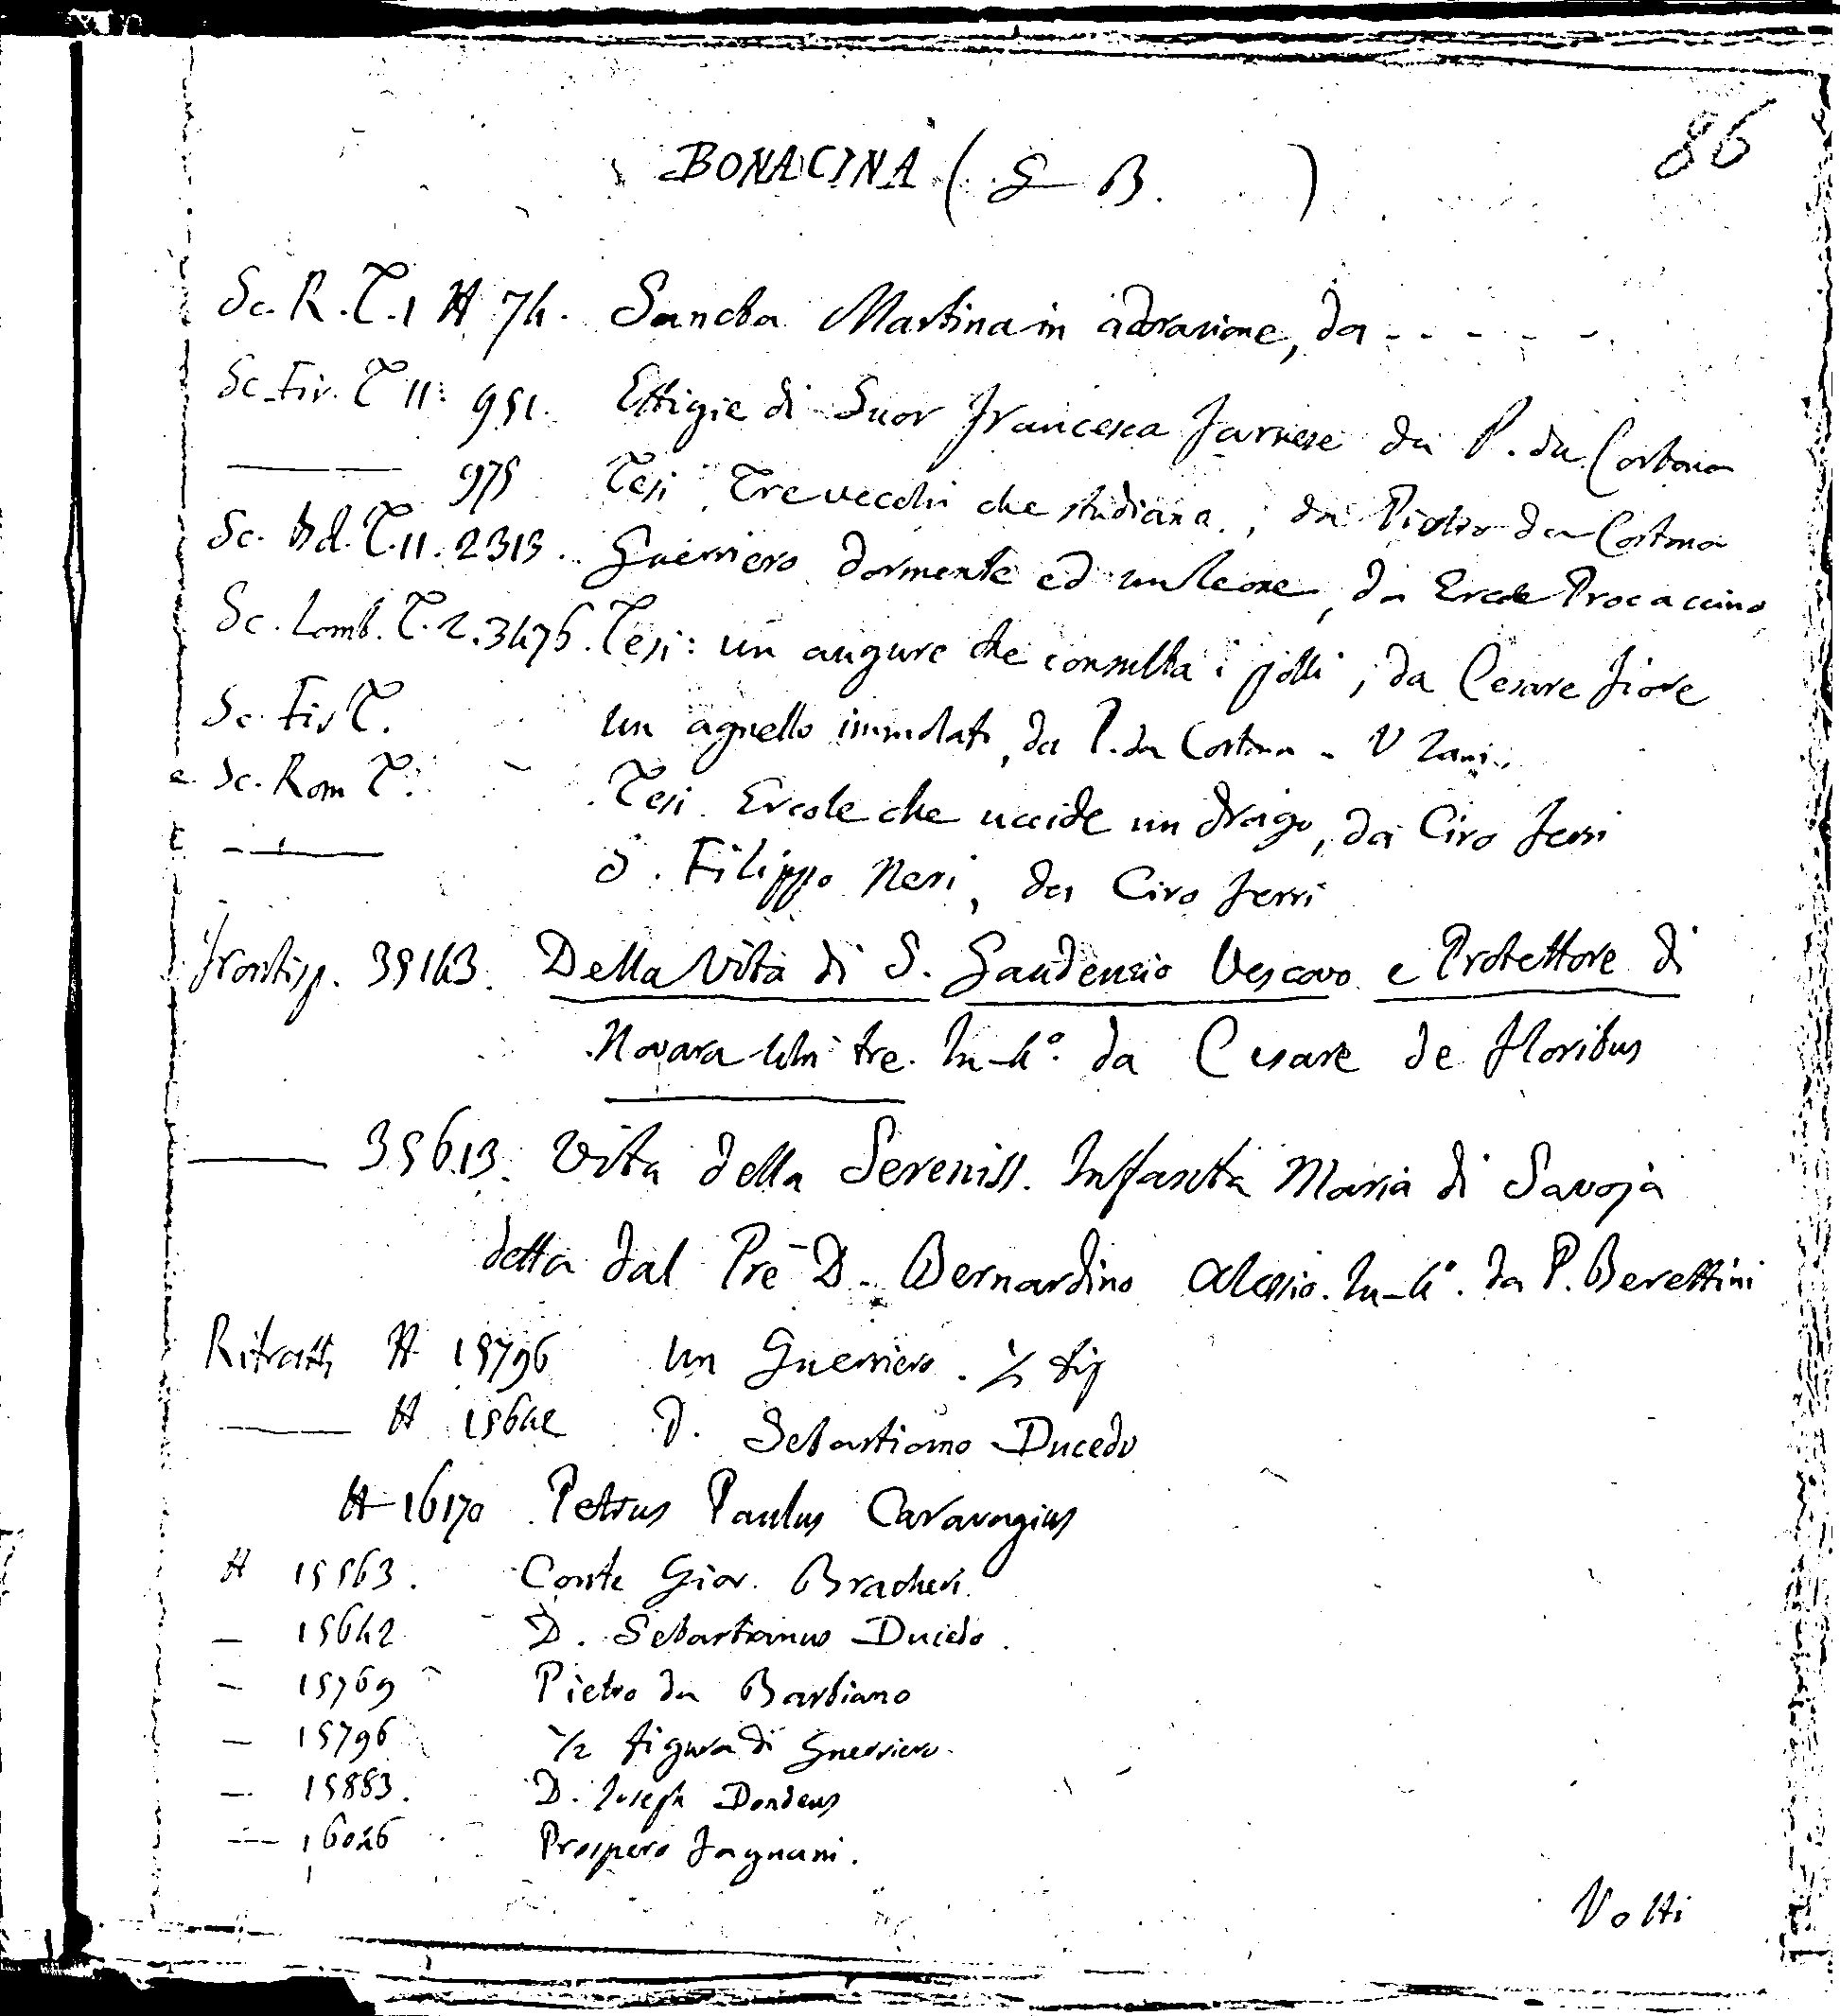 86
BONACINA ( G B. )
Sc. R. T. 1 N 74. Sancta Martina in adorazione, da - - - - -
Sc. Fir. T II: 951. Effigie di Suor Francesca Farnese da P. da Cortona
——— 975 Tesi Tre vecchi che studiano, da Pietro da Cortona
Sc. Bol. T. II. 2313. Guerriero dormente ed un leone, da Ercole Procaccino
Sc. Lomb. T. 2. 3476. Tesi: un augure che consulta i polli, da Cesare Fiore
Sc. Fir T. Un agnello immolato, da P. da Cortona - V Zani.
Sc. Rom T. Tesi Ercole che uccide un drago, da Ciro Ferri
——— S. Filippo Neri, da Ciro Ferri
Frontisp. 35143. Della Vita di S. Gaudenzio Vescovo e Protettore di
Novara libri tre. In-4° da Cesare de Floribus
——— 35613. Vita della Sereniss. Infanta Maria di Savoja
detta dal Pre D. Bernardino Alessio. In-4°. da P. Berettini
Ritratti N 15796 Un Guerriero. ½ fig
——— N 15642 D. Sebastiano Ducedo
N 16170 Petrus Paulus Caravagius
N 15563. Conte Giov. Bracheri.
— 15642 D. Sebastianus Ducedo.
— 15769 Pietro da Barbiano
— 15796 ½ figura di Guerriero.
— 15883. D. Joseph Dondeus
— 16046 Prospero Fagnani.
Volti